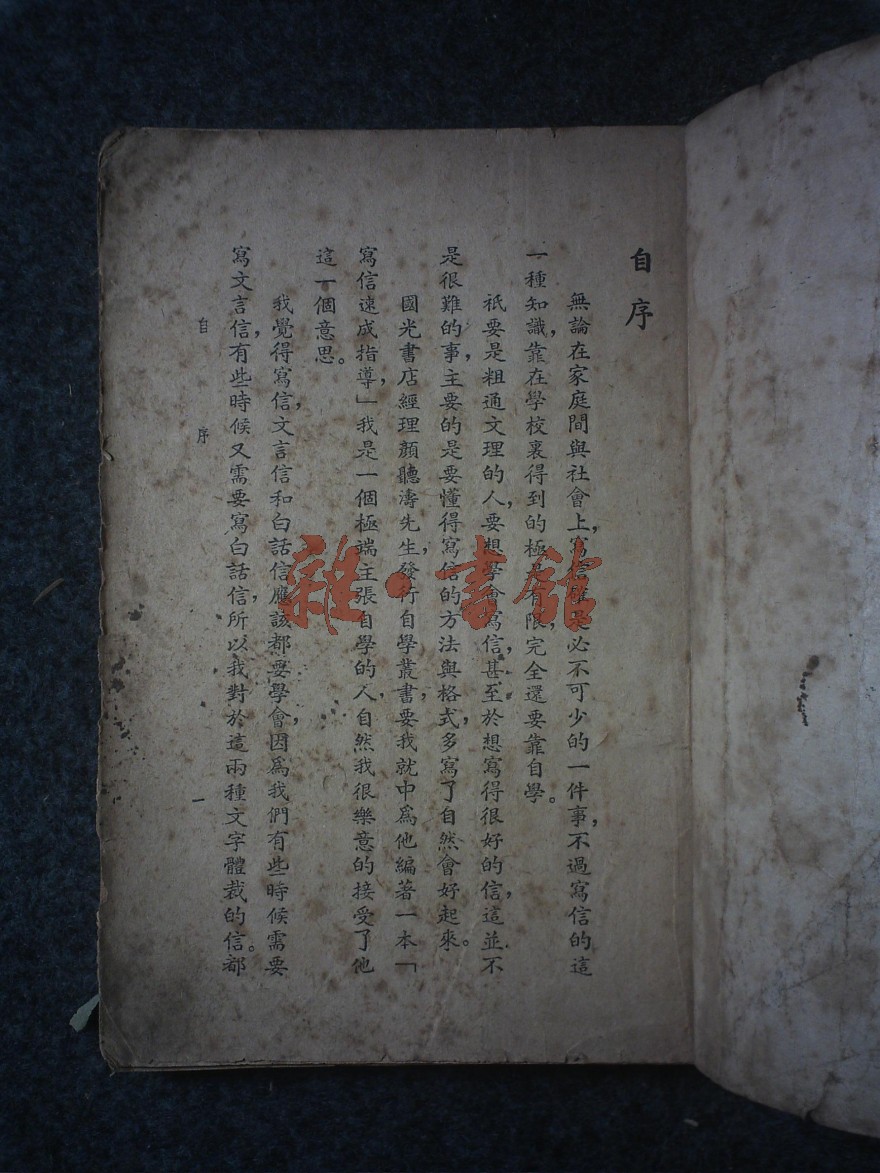 自序
無論在家庭間與社會上，寫信確是必不可少的一件事，不過寫信的這
一種知識，靠在學校裏得到的極是有限，完全還要靠自學。
祇要是粗通文理的人，要想學會寫信，甚至於想寫得很好的信，這並不
是很難的事，主要的是要懂得寫信的方法與格式，多寫了自然會好起來。
國光書店經理顏聽濤先生，發行自學叢書，要我就中爲他編著一本「
寫信速成指導，」我是一個極端主張自學的人，自然我很樂意的接受了他
這一個意思。
我覺得寫信，文言信和白話信應該都要學會，因爲我們有些時候需要
寫文言信，有些時候又需要寫白話信，所以我對於這兩種文字體裁的信。都
自序
一
雜·書館